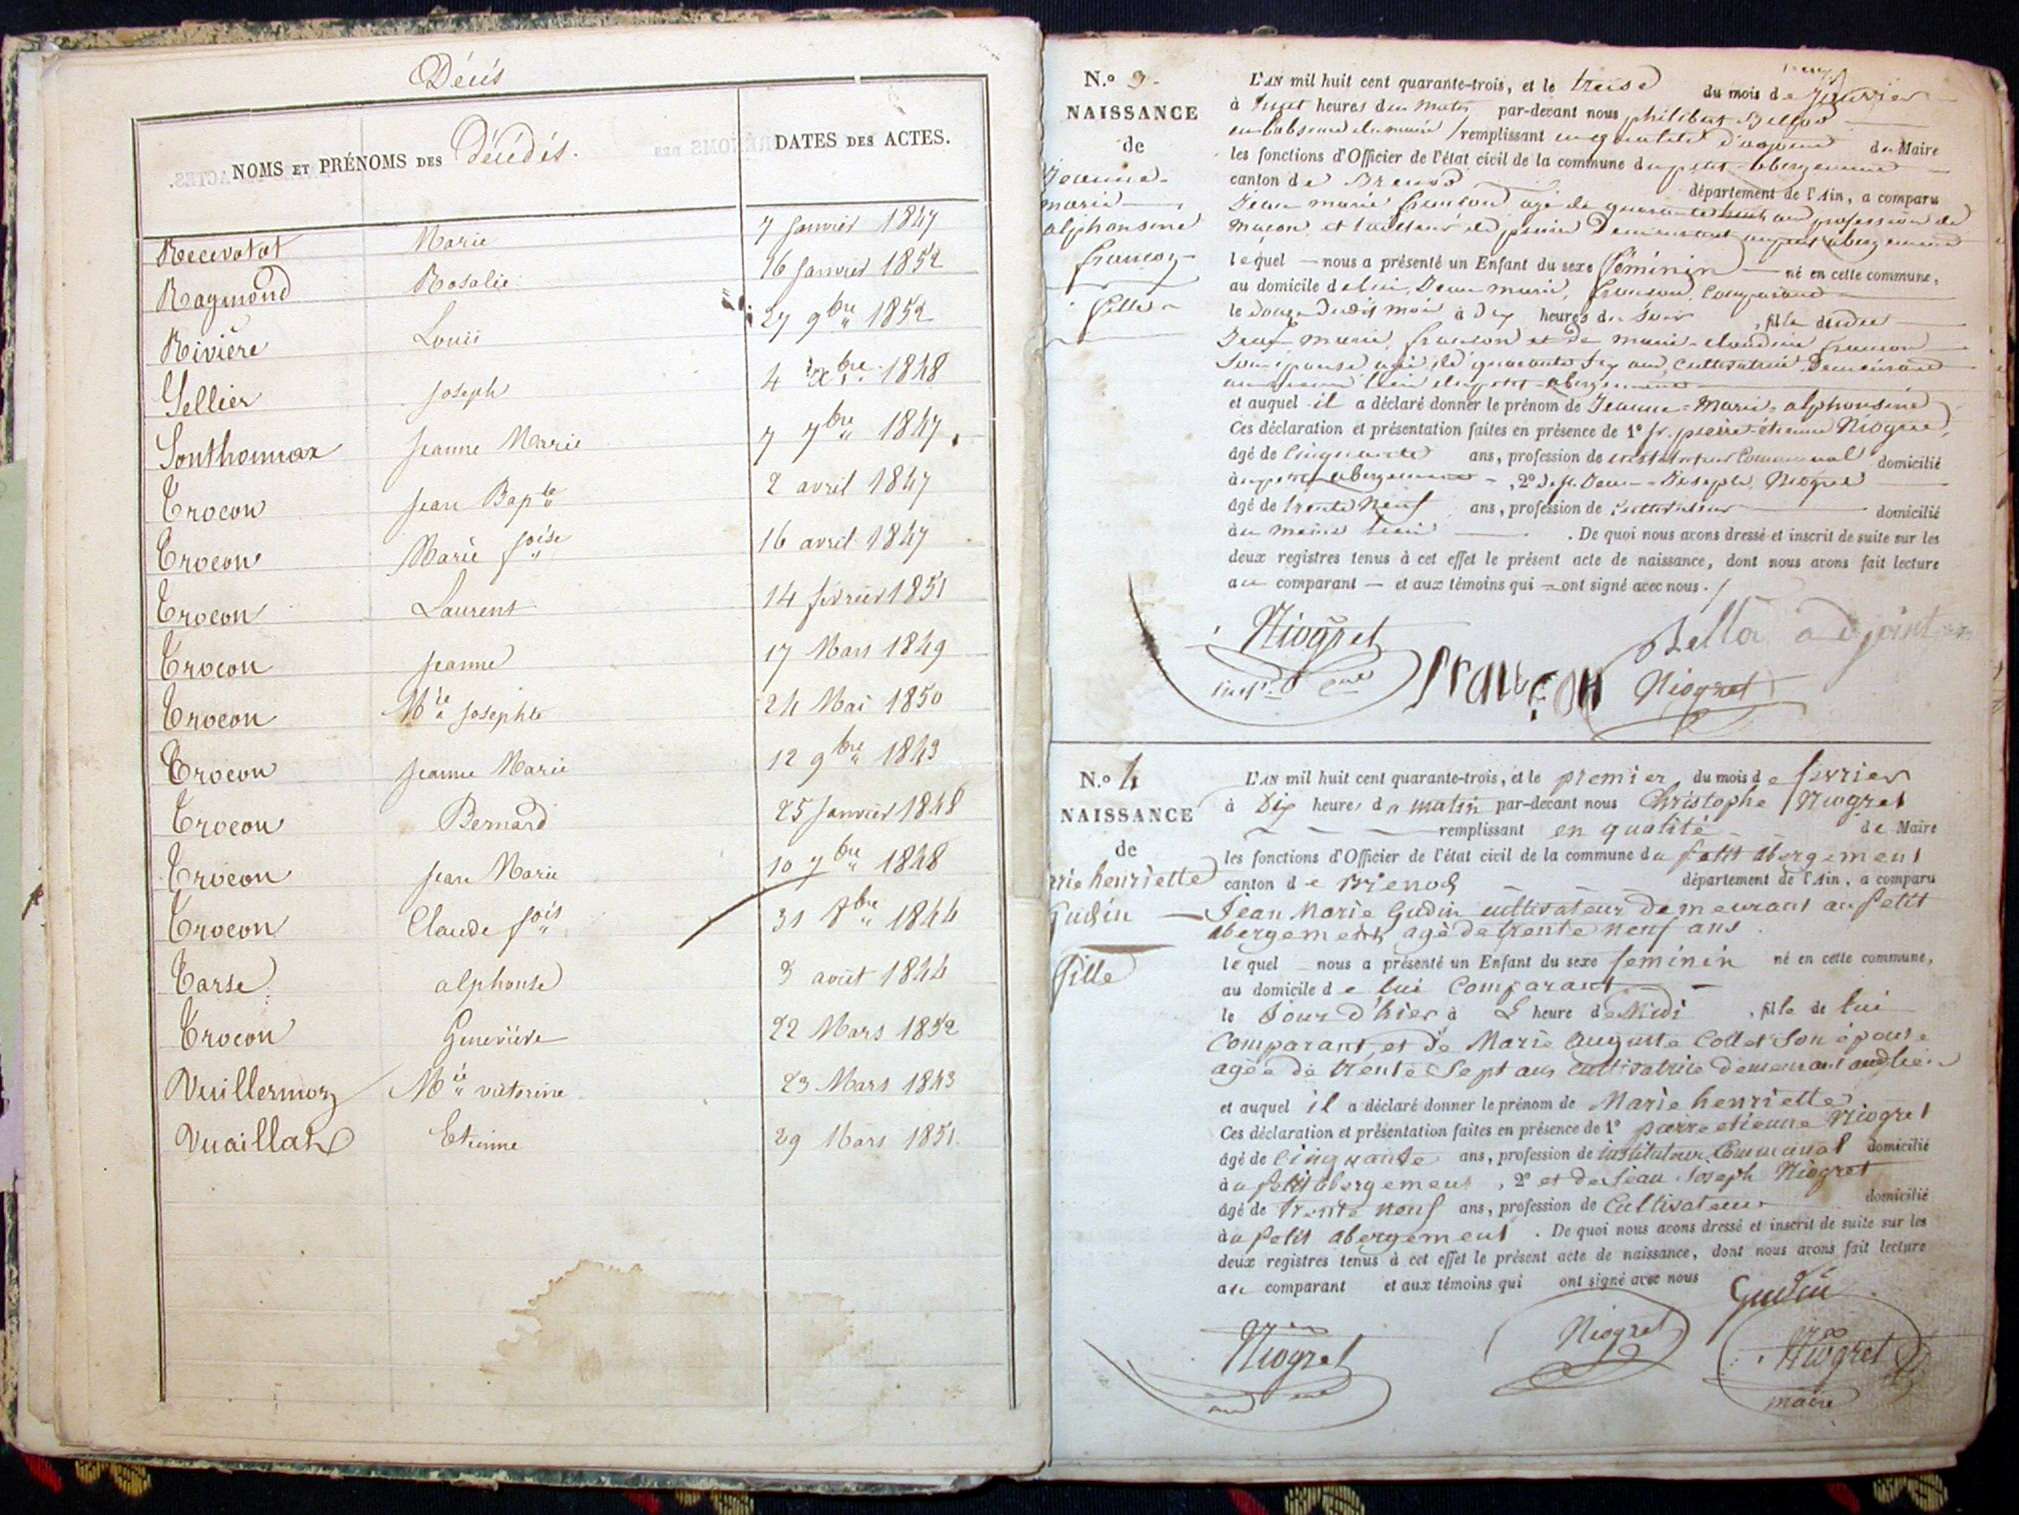 Décès
NOMS ET PRÉNOMS DES Décédés.
DATES DES ACTES.
Recevotat Marie 7 Janvier 1847
Raymond Rosalie 16 Janvier 1852
Rivière Louis 27 9bre 1852
Sellier Joseph 4 Xbre 1848
Sonthonnax Jeanne Marie 7 7bre 1847
Crocon Jean Bapte 2 avril 1847
Crocon Marie foise 16 avril 1847
Crocon Laurent 14 février 1851
Crocon Jeanne 17 Mars 1849
Crocon Mie Josephte 24 Mai 1850
Crocon Jeanne Marie 12 9bre 1843
Crocon Bernard 25 Janvier 1848
Crocon Jean Marie 10 7bre 1848
Crocon Claude fois 31 8bre 1844
Carse alphonse 3 août 1844
Crocon Geneviève 22 Mars 1852
Vuillermoz Mie victorine 23 Mars 1843
Vuaillat Etienne 29 Mars 1851
N.o 3.
NAISSANCE
de
Jeanne-
marie
alphonsine
françon
fille
L'AN mil huit cent quarante-trois, et le treise du mois de Janvier
à huit heures du matin par-devant nous philibert Bellod
en l'absence du maire remplissant en qualité d'adjoint du Maire
les fonctions d'Officier de l'état civil de la commune du petit abergement
canton de Brenod département de l'Ain, a comparu
Jean marie françon agé de quarante ans profession de
maçon et tailleur de pierre Demeurant au petit abergement
lequel nous a présenté un Enfant du sexe féminin né en cette commune,
au domicile de lui, Jean marie, françon, Comparant
le douze dudit moi à dix heures du soir, fille dudit
Jean marie françon et de marie claudine françon
Son épouse agée de quarante six ans, Cultivatrice Demeurant
au même lieu du petit abergement
et auquel il a déclaré donner le prénom de Jeanne-Marie-alphonsine
Ces déclaration et présentation faites en présence de 1o Sr. pierre étienne Niogret,
âgé de Cinquante ans, profession de instituteur Communal domicilié
au petit abergement, 2o de Sr. Jean-Joseph Niogret
âgé de trente Neuf ans, profession de Cultivateur domicilié
au même lieu. De quoi nous avons dressé et inscrit de suite sur les
deux registres tenus à cet effet le présent acte de naissance, dont nous avons fait lecture
au comparant et aux témoins qui ont signé avec nous.
Niogret
Bellod adjoint
françon
Niogret
N.o 4
NAISSANCE
de
rie henriette
Gudin
fille
L'AN mil huit cent quarante-trois, et le premier du mois de fevrier
à Dix heures du matin par-devant nous Christophe Niogret
remplissant en qualité de Maire
les fonctions d'Officier de l'état civil de la commune du petit abergement
canton de Brenod département de l'Ain, a comparu
Jean Marie Gudin cultivateur Demeurant au petit
abergement agé de trente neuf ans
lequel nous a présenté un Enfant du sexe feminin né en cette commune,
au domicile de lui Comparant
le Jour d'hier à heure de Midi, fille de lui
Comparant, et de Marie Auguste Collet Son épouse
agée de trente Sept ans cultivatrice demeurant audit lieu
et auquel il a déclaré donner le prénom de Marie henriette
Ces déclaration et présentation faites en présence de 1o pierre etienne Niogret
âgé de Cinquante ans, profession de instituteur Communal domicilié
au petit abergement, 2o et de Jean Joseph Niogret
âgé de trente neuf ans, profession de Cultivateur domicilié
au petit abergement. De quoi nous avons dressé et inscrit de suite sur les
deux registres tenus à cet effet le présent acte de naissance, dont nous avons fait lecture
au comparant et aux témoins qui ont signé avec nous
Gudin
Niogret
Niogret
Niogret
maire